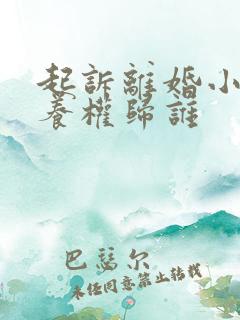 起訴離婚小
養權歸誰
巴瑟尔
未经同意禁止转载